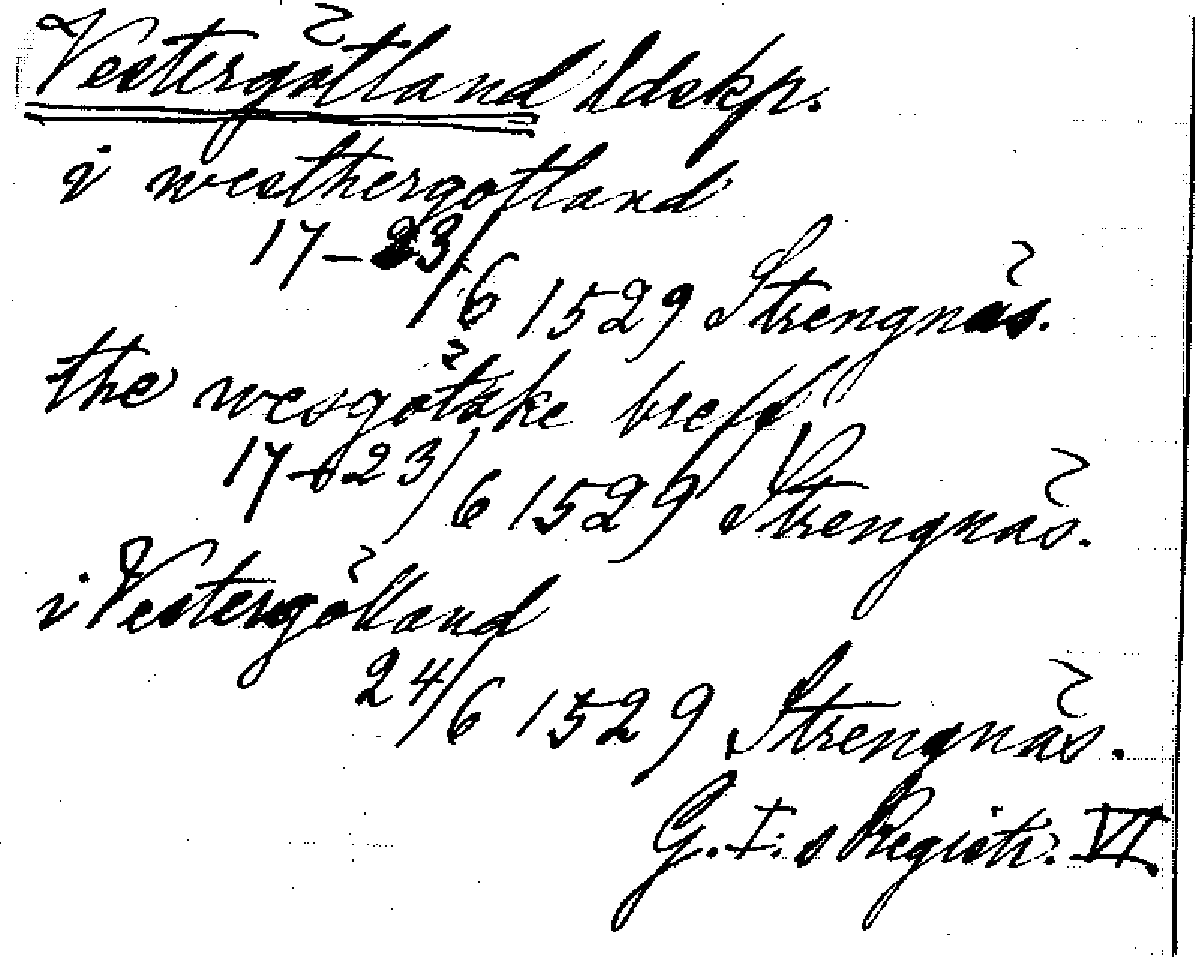 Vestergötland ldskp.
i westhergotland
17–23/6 1529 Strengnäs.
the wesgötske breff
17–23/6 1529 Strengnäs.
i Vestergötland
24/6 1529 Strengnäs.
G. I:s Registr. VI